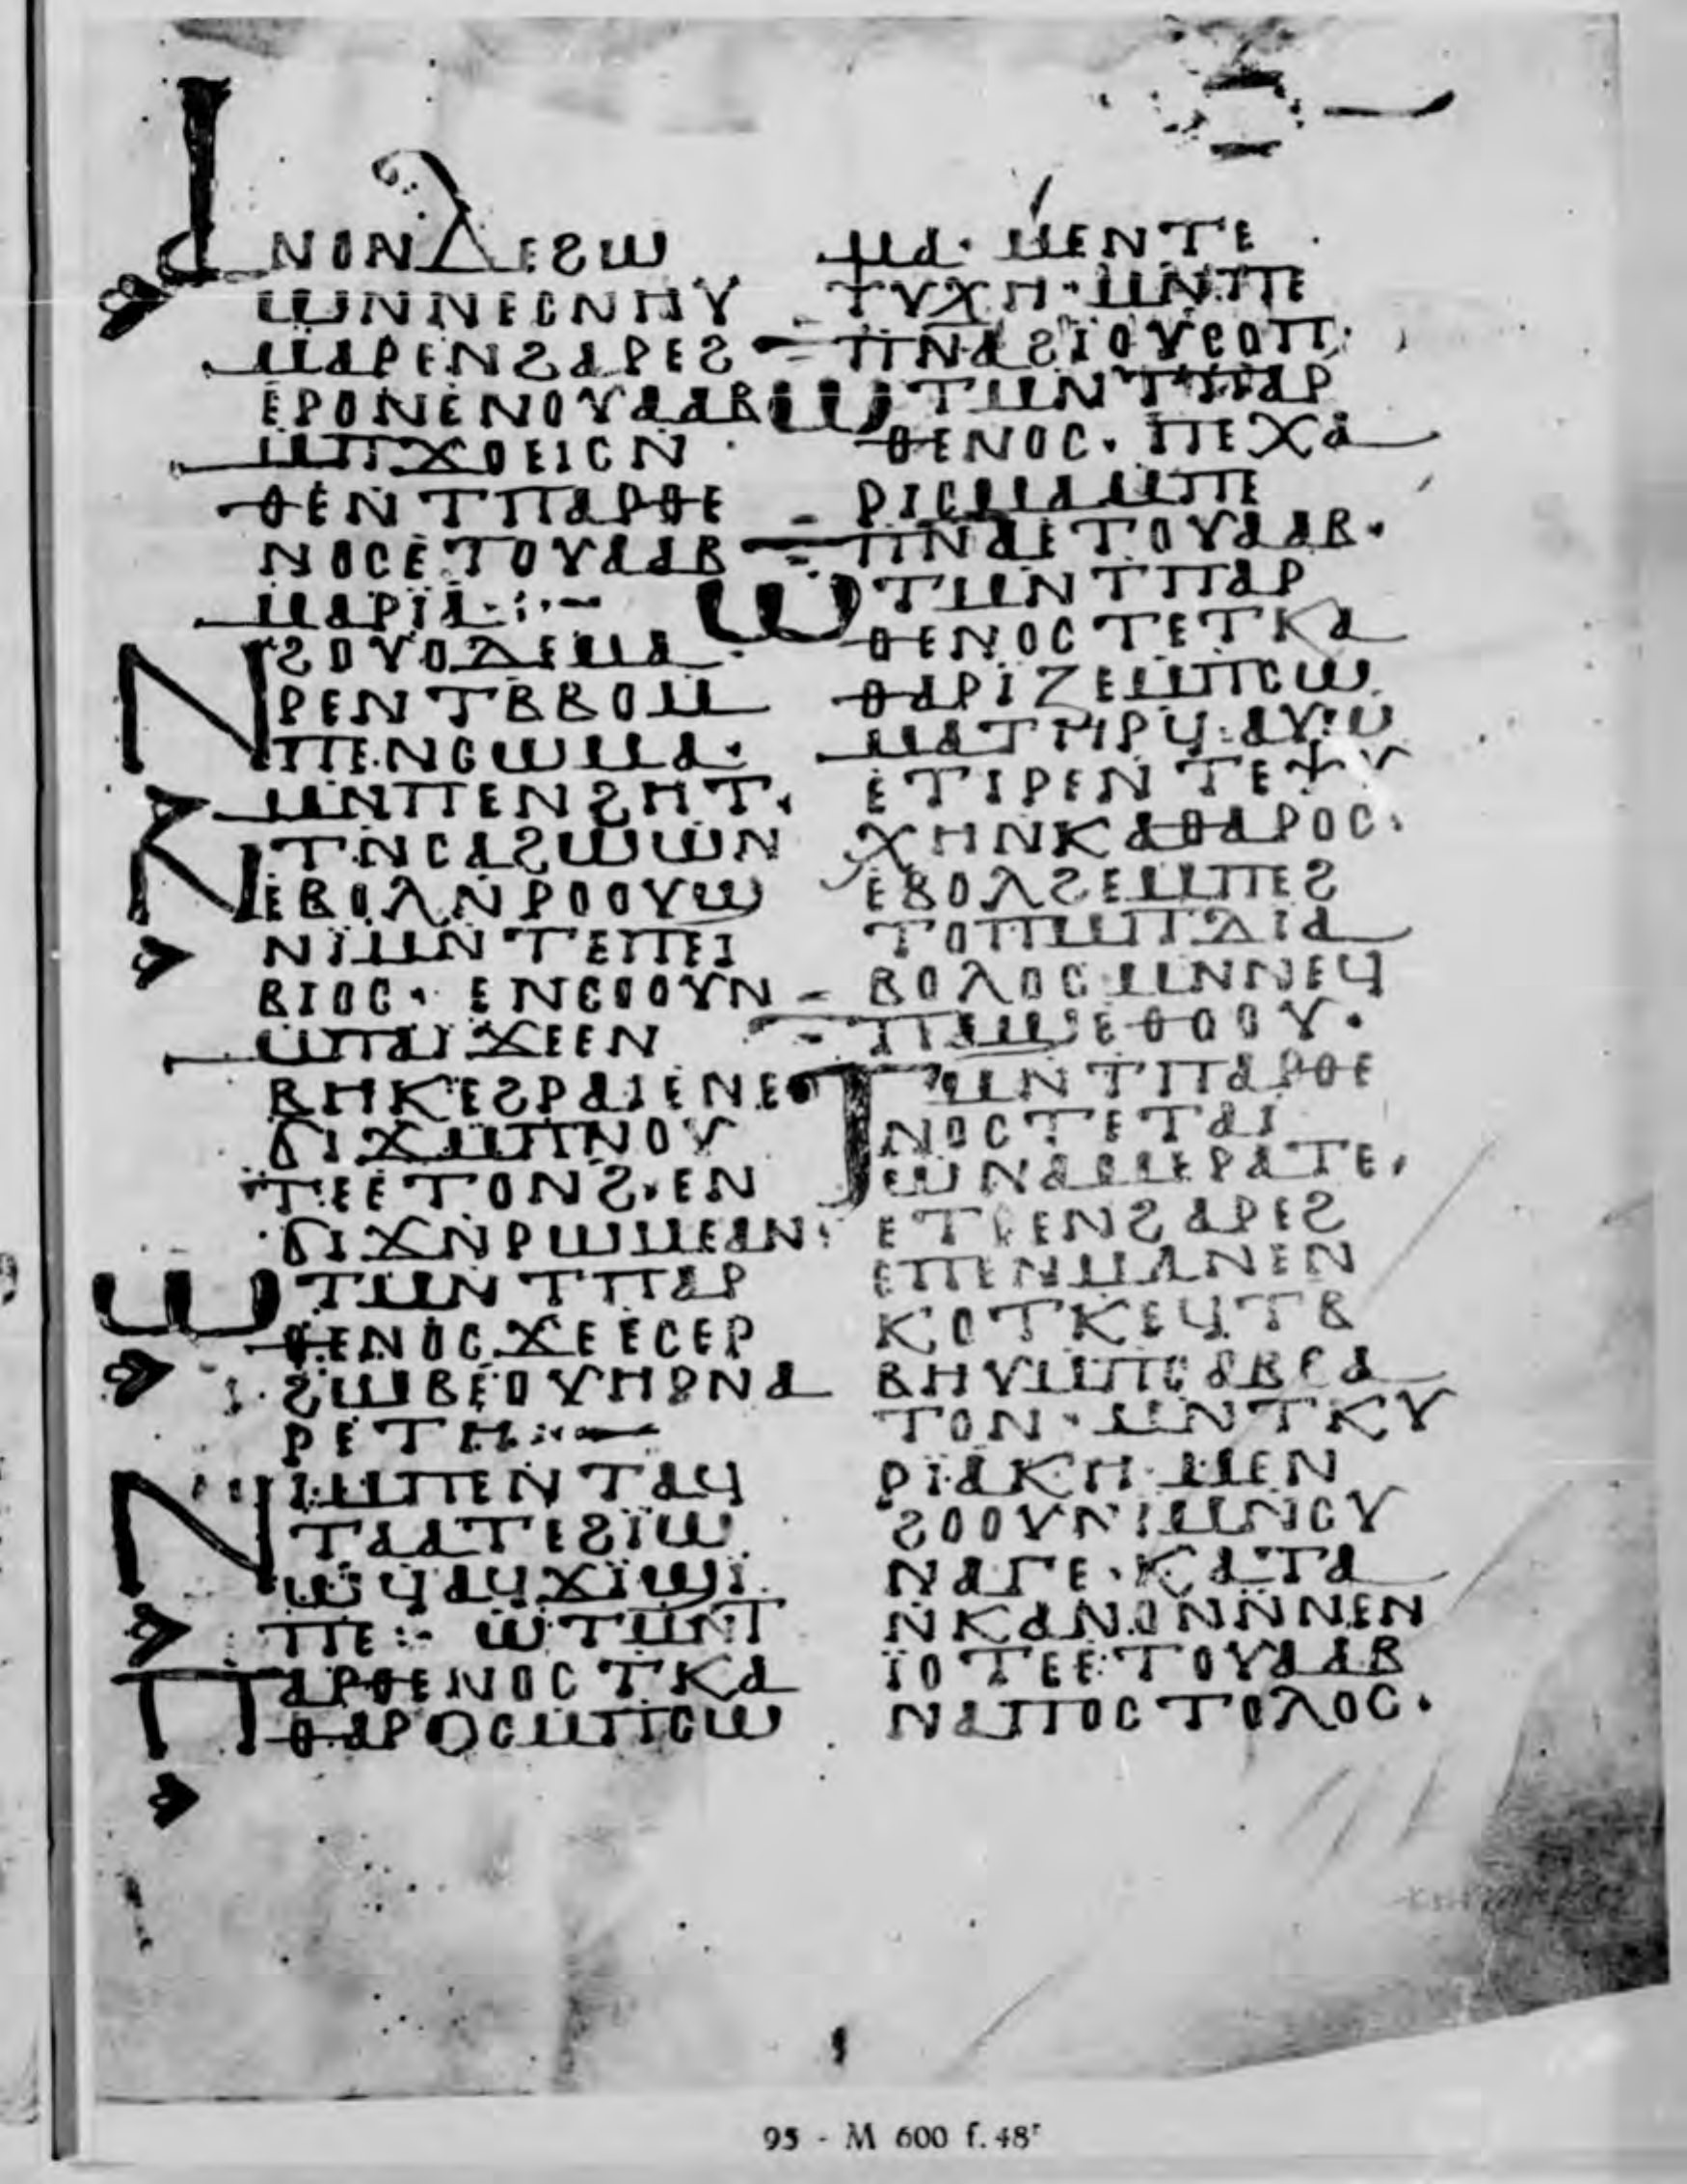 ⲀⲚⲟⲚⲆⲉϩⲱ
ⲱⲚⲛⲉⲥⲛⲏⲩ
ⲙⲁⲣⲉⲛϩⲁⲣⲉϩ
ⲉⲣⲟⲛⲉⲛⲟⲩⲁⲁⲃ
ⲙⲡϫⲟⲉⲓⲥⲛ
ⲑⲉⲛⲧⲡⲁⲣⲑⲉ
ⲛⲟⲥⲉⲧⲟⲩⲁⲁⲃ
ⲙⲁⲣⲓⲁ:·–
Ⲛϩⲟⲩⲟⲇⲉⲙⲁ
ⲣⲉⲛⲧⲃⲃⲟⲙ
ⲡⲉⲛⲥⲱⲙⲁ·
ⲙⲛⲡⲉⲛϩⲏⲧ·
Ⲛⲧⲛⲥⲁϩⲱⲱⲛ
ⲉⲃⲟⲗⲛⲣⲟⲟⲩϣ
ⲛⲓⲙⲛⲧⲉⲡⲉⲓ
ⲃⲓⲟⲥ· ⲉⲛⲥⲟⲟⲩⲛ
ⲙⲡⲁⲓϫⲉⲉⲛ
ⲃⲏⲕⲉϩⲣⲁⲓⲉⲛⲉ
ϭⲓϫⲙⲡⲛⲟⲩ
ⲧⲉⲉⲧⲟⲛϩ·ⲉⲛ
ϭⲓϫⲛⲣⲱⲙⲉⲁⲛ:
Ⲱⲧⲙⲛⲧⲡⲁⲣ
ⲑⲉⲛⲟⲥϫⲉⲉⲥⲉⲣ
ϩⲱⲃⲉⲟⲩⲏϭⲛⲁ
ⲣⲉⲧⲏ:·–
Ⲛⲓⲙⲡⲉⲛⲧⲁϥ
ⲧⲁⲁⲧⲉϩⲓⲱ
ⲱϥⲁϥϫⲓϣⲓ
ⲡⲉ:- ⲱⲧⲙⲛⲧ
Ⲡⲁⲣⲑⲉⲛⲟⲥⲧⲕⲁ
ⲑⲁⲣⲟⲥⲙⲡⲥⲱ
ⲙⲁ· ⲙⲉⲛⲧⲉ
ⲯⲩⲭⲏ·ⲙⲛⲡⲉ
ⲡⲛⲁϩⲓⲟⲩⲥⲟⲡ·
Ⲱⲧⲙⲛⲧⲡⲁⲣ
ⲑⲉⲛⲟⲥ· ⲡⲉⲭⲁ
ⲣⲓⲥⲙⲁⲙⲡⲉ
ⲡⲛⲁⲉⲧⲟⲩⲁⲁⲃ·
Ⲱⲧⲙⲛⲧⲡⲁⲣ
ⲑⲉⲛⲟⲥⲧⲉⲧⲕⲁ
ⲑⲁⲣⲓⲍⲉⲙⲡⲥⲱ
ⲙⲁⲧⲏⲣϥ·ⲁⲩⲱ
ⲉⲧⲓⲣⲉⲛⲧⲉⲯⲩ
ⲭⲏⲛⲕⲁⲑⲁⲣⲟⲥ·
ⲉⲃⲟⲗϩⲉⲙⲡⲉϩ
ⲧⲟⲡⲙⲡⲇⲓⲁ
ⲃⲟⲗⲟⲥⲙⲛⲛⲉϥ
ⲙⲉⲉⲩⲉⲑⲟⲟⲩ·
Ⲧⲙⲛⲧⲡⲁⲣⲑⲉ
ⲛⲟⲥⲧⲉⲧⲁⲓ
ⲱⲛⲁⲙⲉⲣⲁⲧⲉ·
ⲉⲧⲣⲉⲛϩⲁⲣⲉϩ
ⲉⲡⲉⲛⲙⲁⲛⲉⲛ
ⲕⲟⲧⲕⲉϥⲧⲃ
ⲃⲏⲩⲙⲡⲥⲁⲃⲃⲁ
ⲧⲟⲛ·ⲙⲛⲧⲕⲩ
ⲣⲓⲁⲕⲏ·ⲙⲉⲛ
ϩⲟⲟⲩⲛⲓⲙⲛⲥⲩ
ⲛⲁⲅⲉ·ⲕⲁⲧⲁ
ⲛⲕⲁⲛⲟⲛⲛⲛⲉⲛ
ⲓⲟⲧⲉⲉⲧⲟⲩⲁⲁⲃ
ⲛⲁⲡⲟⲥⲧⲟⲗⲟⲥ·
95 - M 600 f. 48r